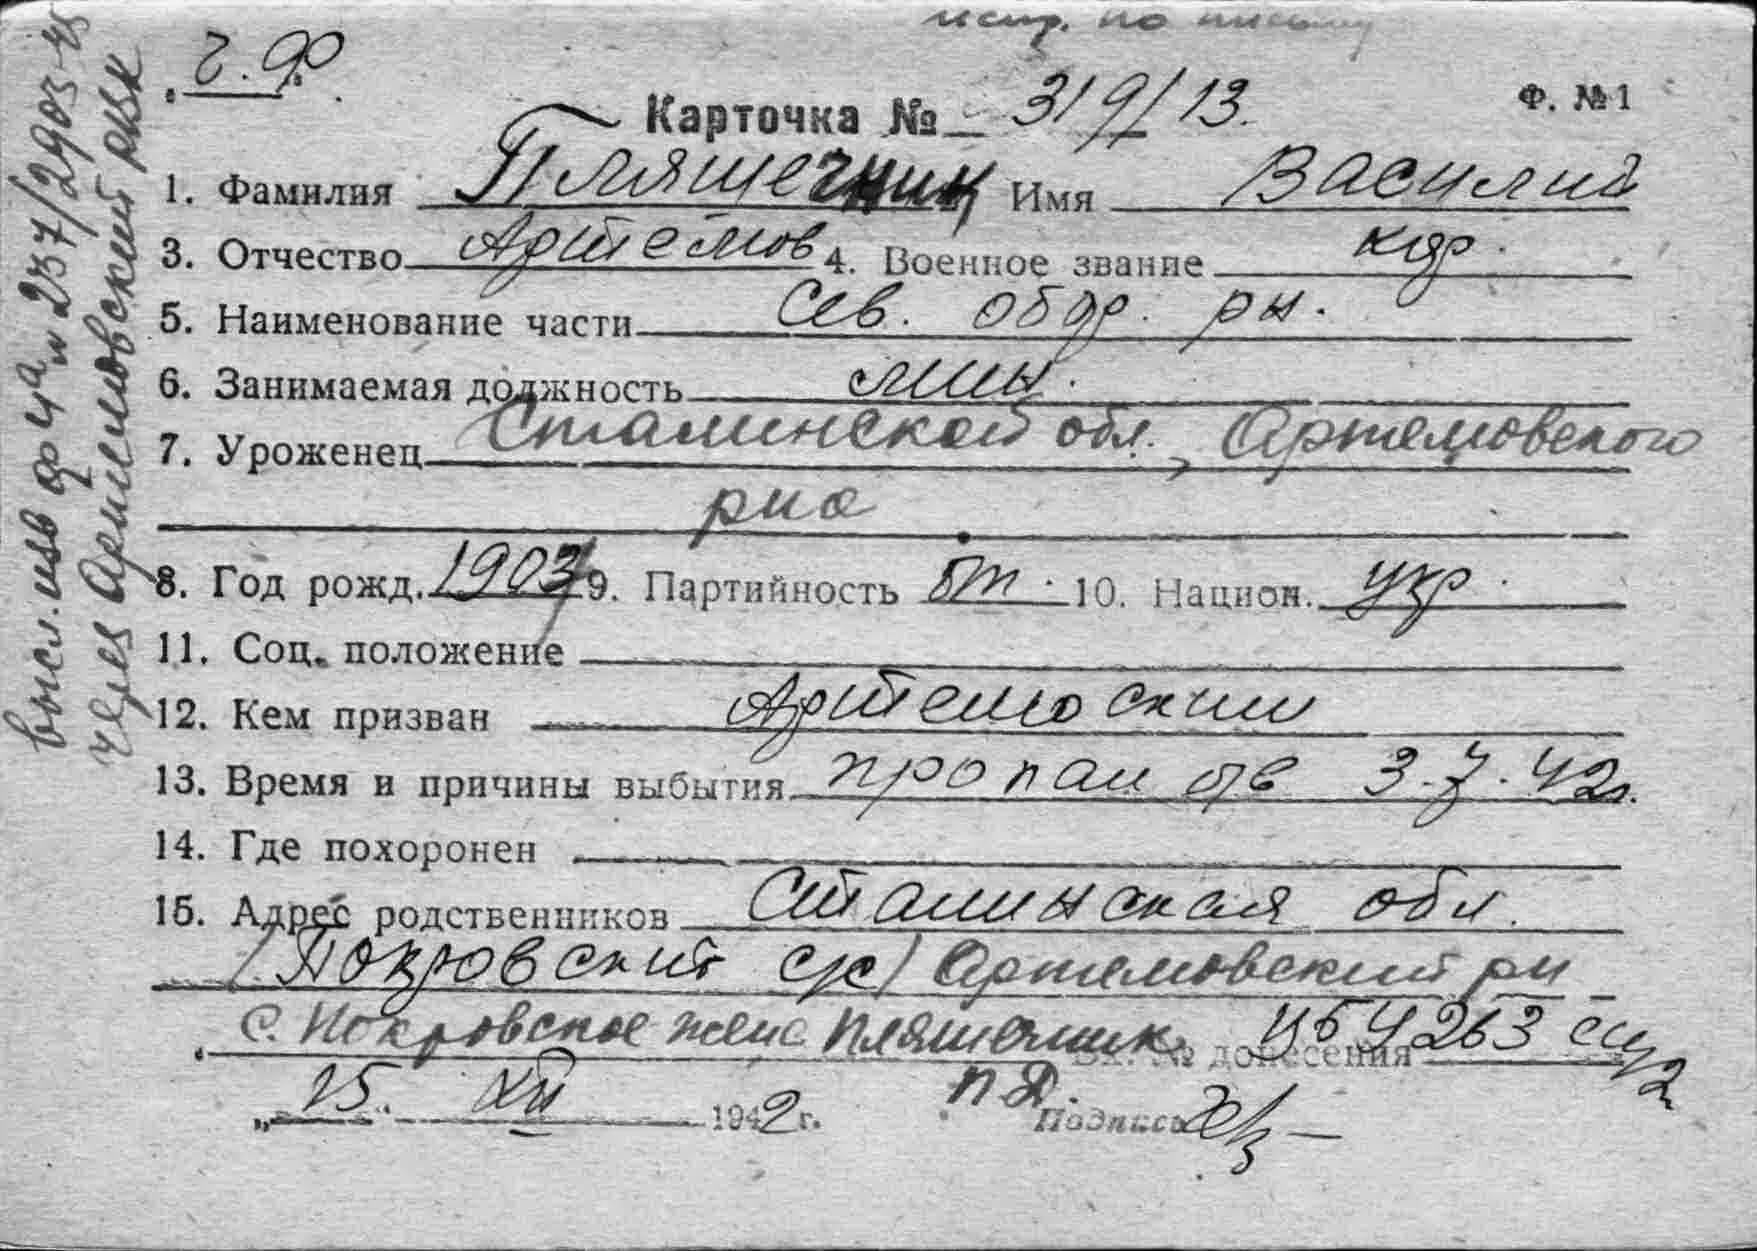 испр. по письму
Ч.Ф.
Карточка № 319/13. Ф. №1
1. Фамилия Пляшечник Имя Василий
3. Отчество Артемов 4. Военное звание кдр.
5. Наименование части Сев. обор. рн.
6. Занимаемая должность
7. Уроженец Сталинской обл., Артемовского
рна
8. Год рожд. 1903 9. Партийность бп. 10. Национ. укр.
11. Соц. положение
12. Кем призван Артемоским
13. Время и причины выбытия пропал б/в 3.7.42г.
14. Где похоронен
15. Адрес родственников Сталинская обл.
(Покровский с/с) Артемовский рн
с. Покровское жена Пляшечник Вх. № донесения
П.Д.
"25" XII 1942 г. Подпись
высл. изв ф 4а n 237/2903-45
через Артемовский РВК